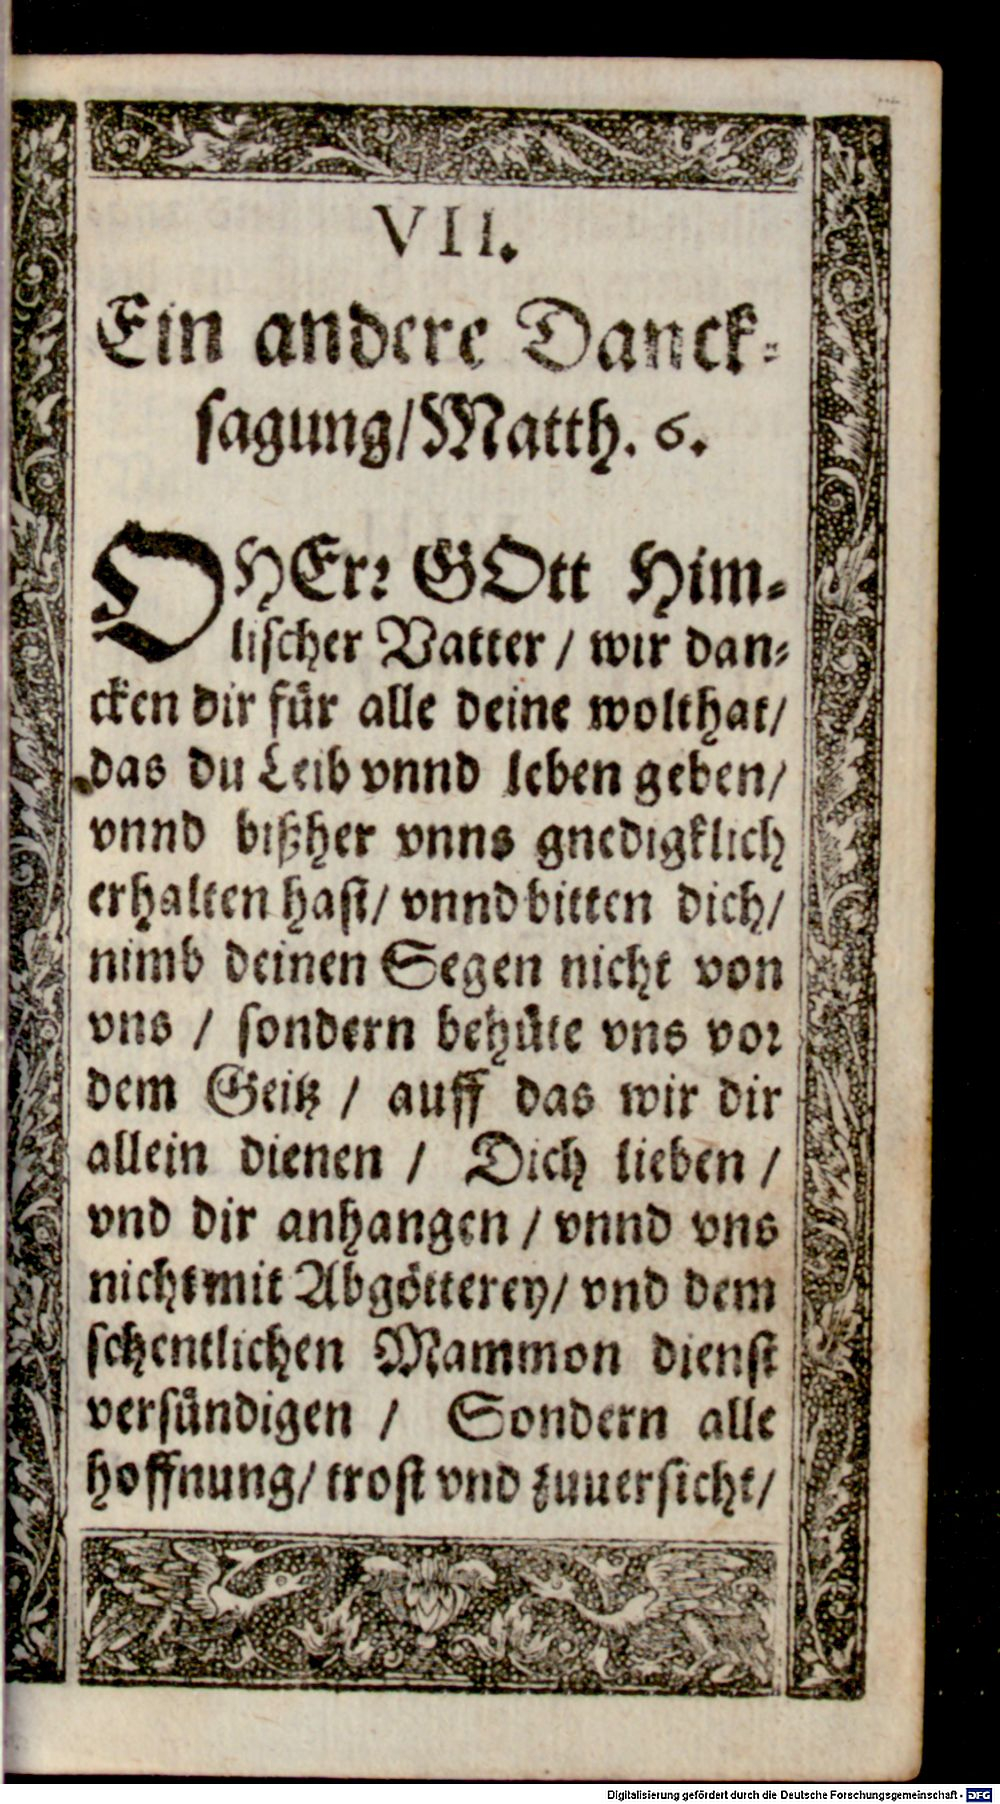 VII.
Ein andere Danck-
sagung/Matth. 6.
O HErr GOtt Him-
lischer Vatter / wir dan-
cken dir für alle deine wolthat/
das du Leib vnnd leben geben/
vnnd bißher vnns gnedigklich
erhalten hast/ vnnd bitten dich/
nimb deinen Segen nicht von
vns / sondern behüte vns vor
dem Geitz / auff das wir dir
allein dienen / Dich lieben /
vnd dir anhangen / vnnd vns
nicht mit Abgötterey/ vnd dem
schentlichen Mammon dienst
versündigen / Sondern alle
hoffnung/ trost vnd zuuersicht/
Digitalisierung gefördert durch die Deutsche Forschungsgemeinschaft - DFG